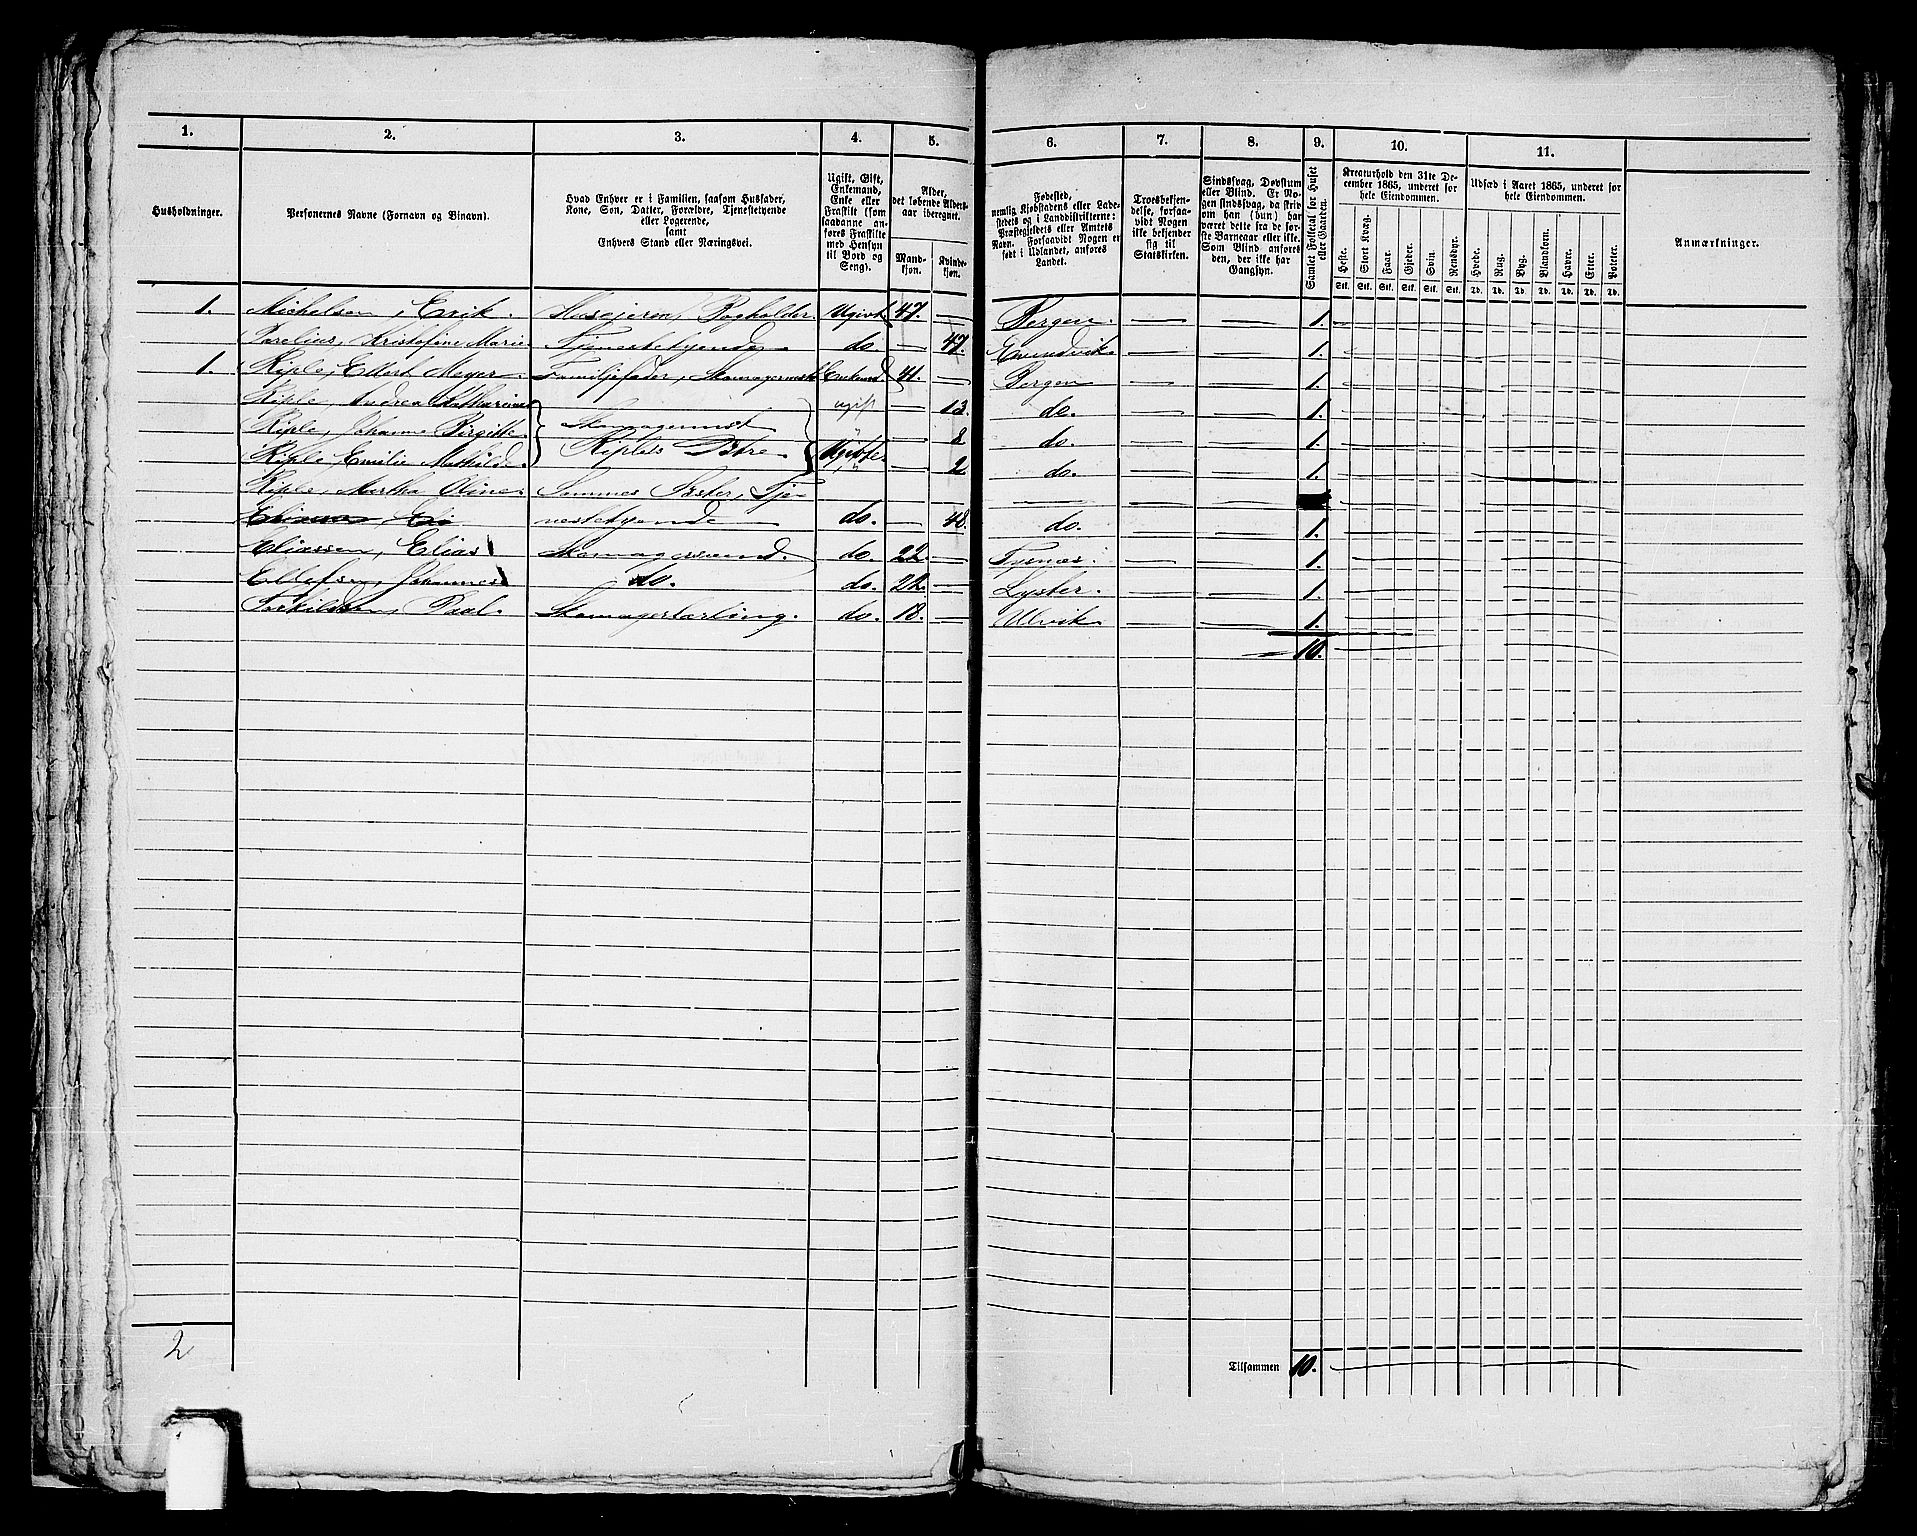 1. 2. 3. 4. 5. 6. 7. 8. 9. 10. 11.
Husholdninger.
Personernes Navne (Fornavn og Binavn).
Hvad Enhver er i Familien, saasom Husfader,
Kone, Søn, Datter, Forældre, Tjenestetyende
eller Logerende,
samt
Enhvers Stand eller Næringsvei.
Ugift, Gift,
Enkemand,
Enke eller
Fraskilt (som
saadanne an-
føres Fraskilte
med Hensyn
til Bord og
Seng).
Alder,
det løbende Alders-
aar iberegnet.
Mand-
kjøn.
Kvinde-
kjøn.
Fødested,
nemlig Kjøbstadens eller Lade-
stedets og i Landdistrikterne:
Præstegjeldets eller Amtets
Navn. Forsaavidt Nogen er
født i Udlandet, anføres
Landet.
Troesbekjen-
delse, forsaa-
vidt Nogen
ikke bekjender
sig til
Statskirken.
Sindssvag, Døvstum
eller Blind. Er No-
gen sindssvag, da skriv
om han (hun) har
været dette fra de før-
ste Barneaar eller ikke.
Som Blind anføres
den, der ikke har
Gangsyn.
Samlet Folketal for Huset
eller Gaarden.
Kreaturhold den 31te De-
cember 1865, underet for
hele Eiendommen.
Heste. Stort Kvæg. Faar. Gjeder. Svin. Rensdyr.
Stk. Stk. Stk. Stk. Stk. Stk.
Udsæd i Aaret 1865, underet for
hele Eiendommen.
Hvede. Rug. Byg. Blandkorn. Havre. Erter. Poteter.
Td. Td. Td. Td. Td. Td. Td.
Anmærkninger.
1. Michelsen, Erik. Huseieren, Bogholder. Ugivt 47. — Bergen. — — 1.
Kristofine Marie Tjenestetyende do. — 47. Evindvik — — 1.
1. Riple, Ellert Meyer. Familjefader, Skomagermst Enkemd 41. — Bergen — — 1.
Riple, Andrea Katharine ugift — 13. do. — — 1.
Riple, Johanne Birgitte Skomagermst — 8 do. — — 1.
Riple, Emilie Mathilde Riples Døtre Ugivte — 2 do. — — 1.
Riple, Martha Oline Sammes Søster, Tje-
nestetyende do. — 48. do. — — 1.
Eliassen, Elias Skomagersvend. do. 22. — Tysnæs. — — 1.
Ellefsen, Johannes do. do. 22. — Lyster. — — 1.
Torkildsen, Paal. Skomagerlærling. do. 18. — Ulvik. — — 1.
10.
2
Tilsammen 10.